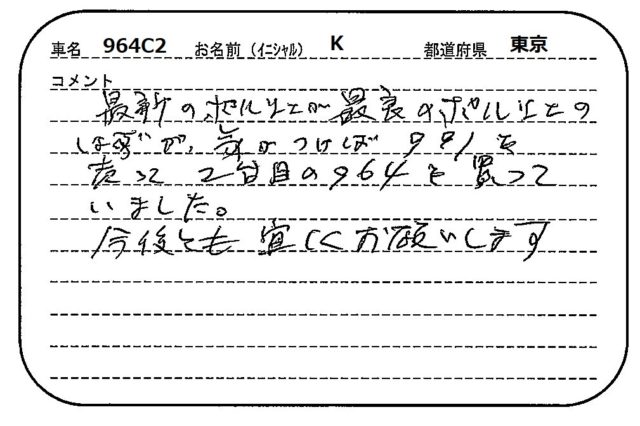 車名 964C2 お名前（イニシャル） K 都道府県 東京
コメント
最新のポルシェが最良のポルシェの
はずが、気がつけば991を
売って2台目の964を買って
いました。
今後とも宜しくお願いします